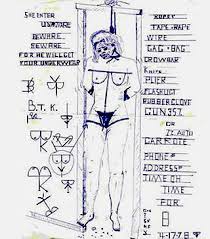 SHE ENTER
BEWARE
BEWARE
FOR HE WILL GET
YOUR UNDERWEAR
B.T.K.
ROPEY
TAPE + RAPE
WIRE
GAG + BAG
CROWBAR
KNIFE
PLIER
FLASHLIGT
RUBBER GLOVE
GUN 357
OR
22 AUTO
GARROTE
PHONE #
ADDRESS #
TIME OH
TIME
FOR
8
4-17-78